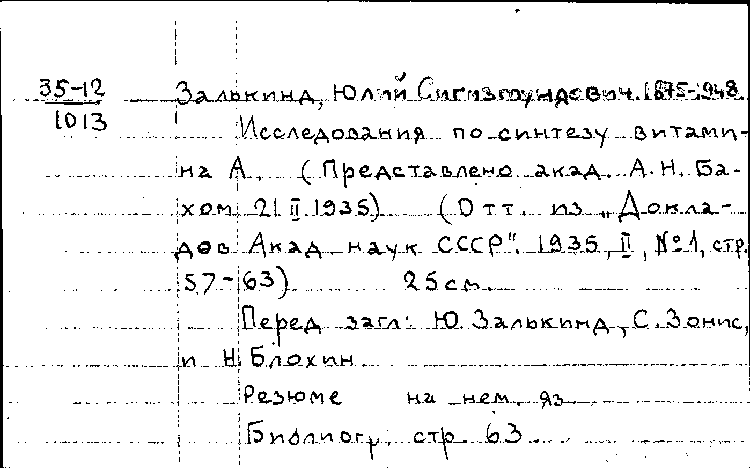 35-12
1013
Залькинд, Юлий Сигизмундович. 1875-1948.
Исследования по синтезу витами-
на А. (Представлено акад. А.Н. Ба-
хом 21 II 1935) (Отт. из „Докла-
дов Акад наук СССР". 1935, II, №1, стр.
57-63) 25 см.
Перед загл: Ю. Залькинд, С. Зонис,
и Н. Блохин
Резюме на нем. яз
Библиогр: стр. 63